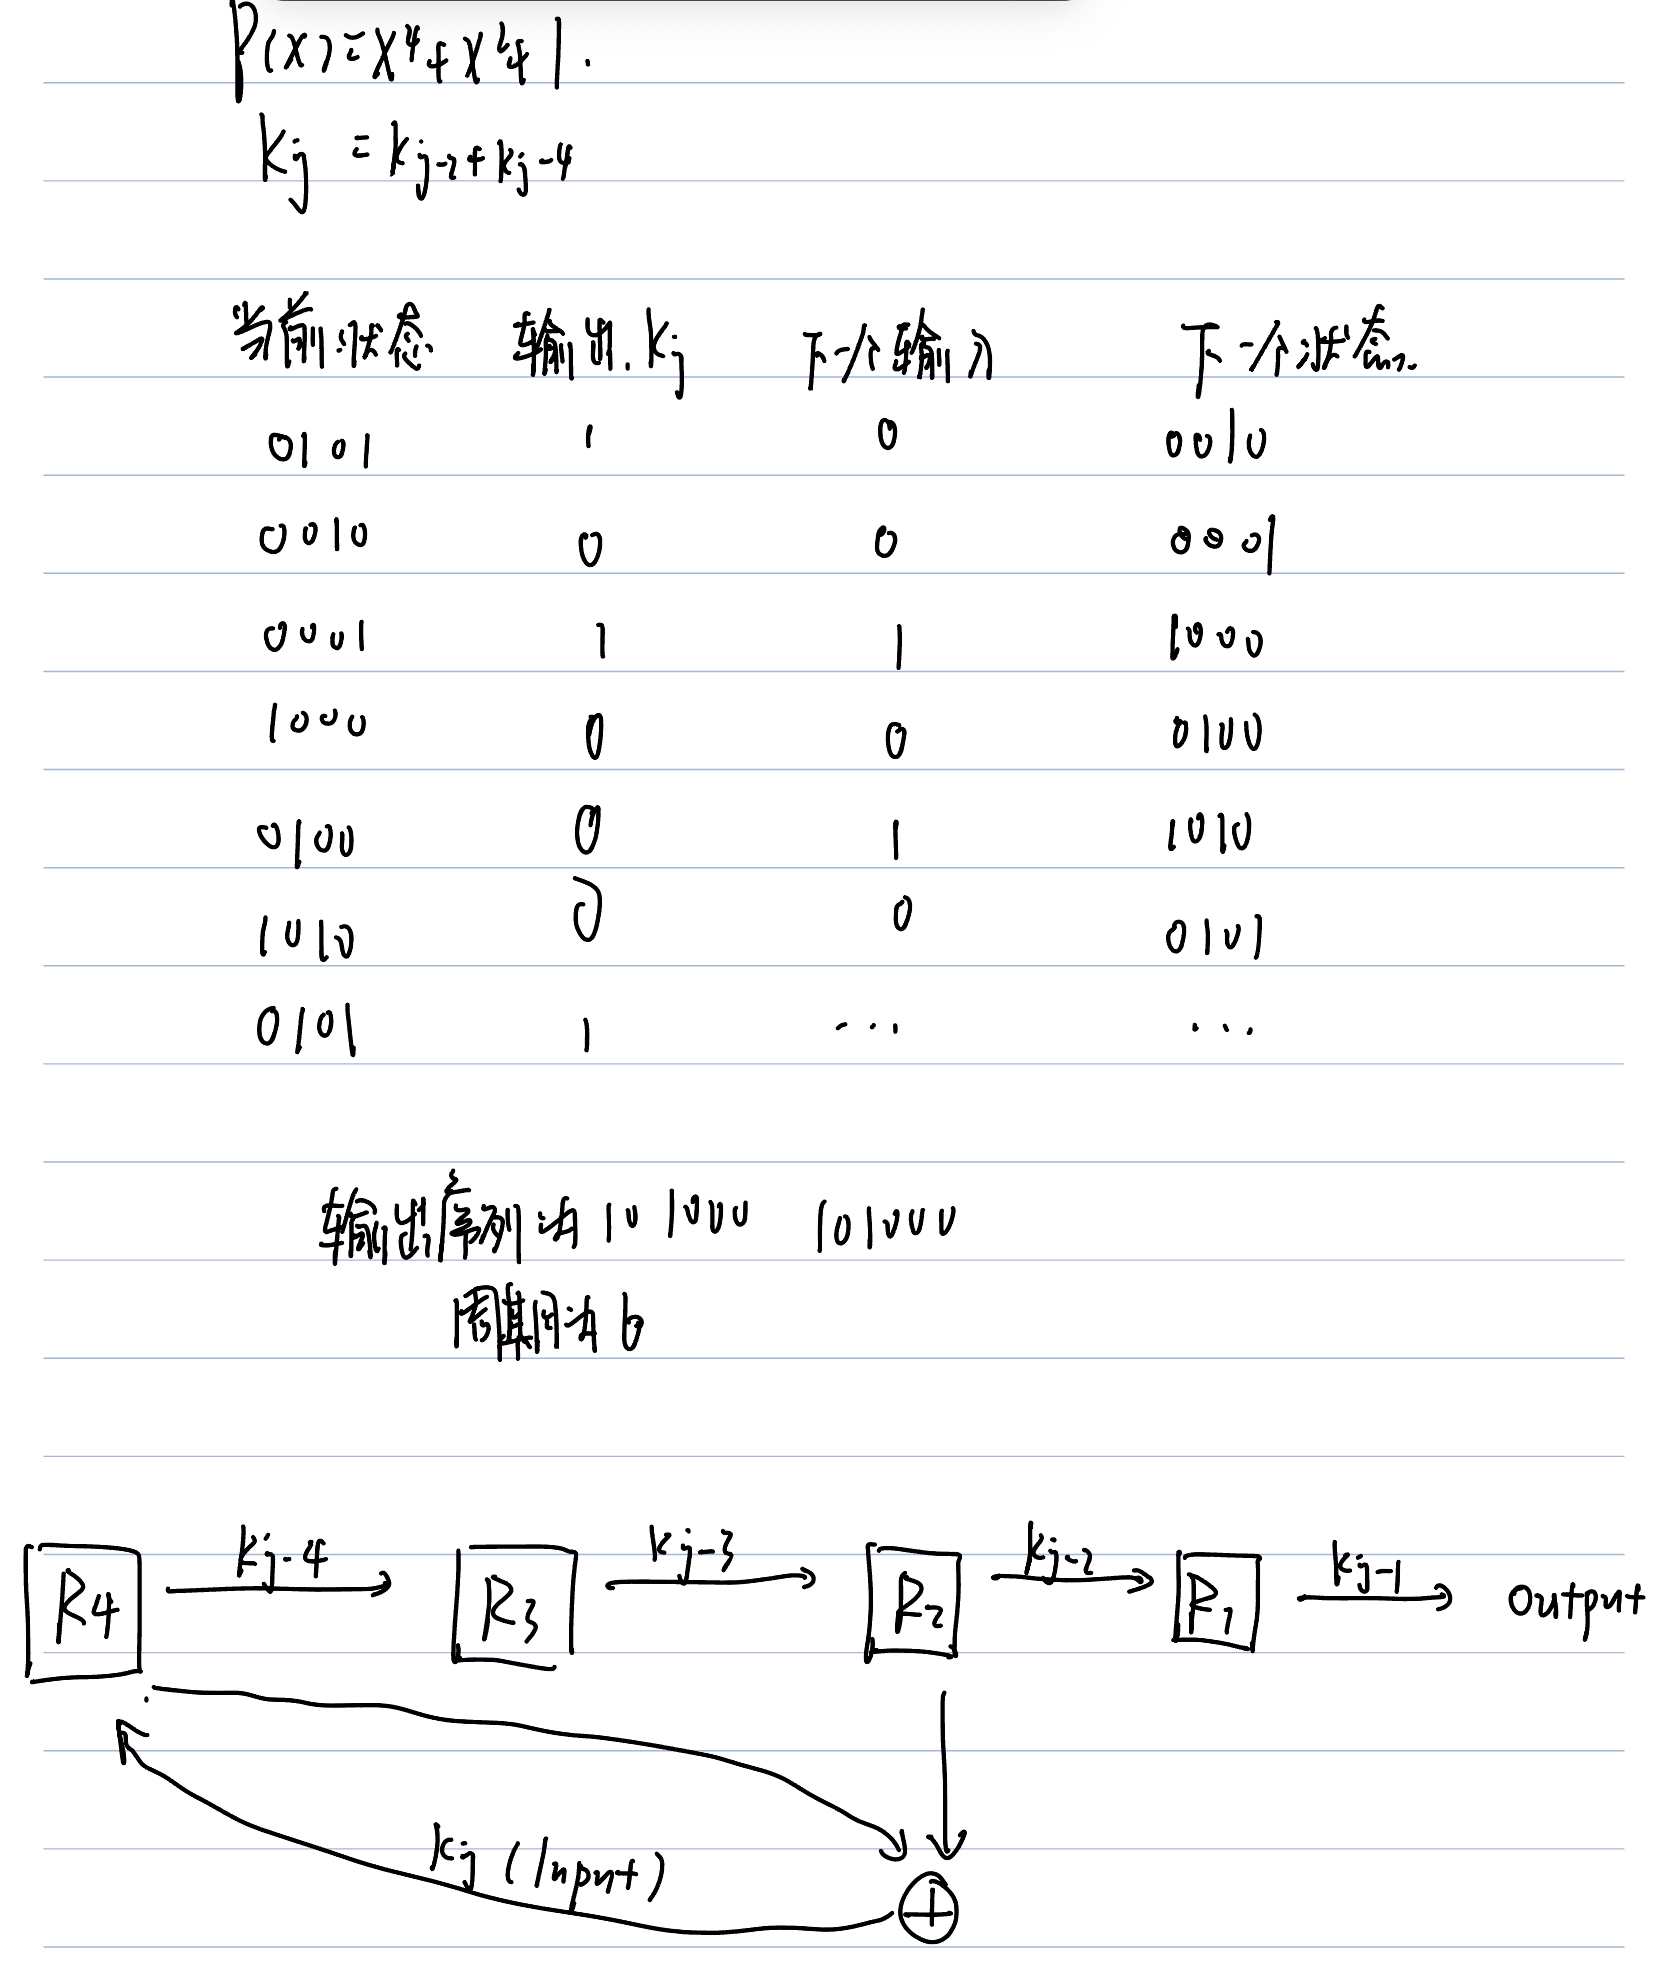 P(x)=x⁴+x²+1.
kj = kj-2+kj-4
当前状态 输出.kj 下一个输入 下一个状态
0101 1 0 0010
0010 0 0 0001
0001 1 1 1000
1000 0 0 0100
0100 0 1 1010
1010 0 0 0101
0101 1 ... ...
输出序列为 101000 101000
周期为6
R4 kj-4 R3 kj-3 R2 kj-2 R1 kj-1 output
kj (Input)